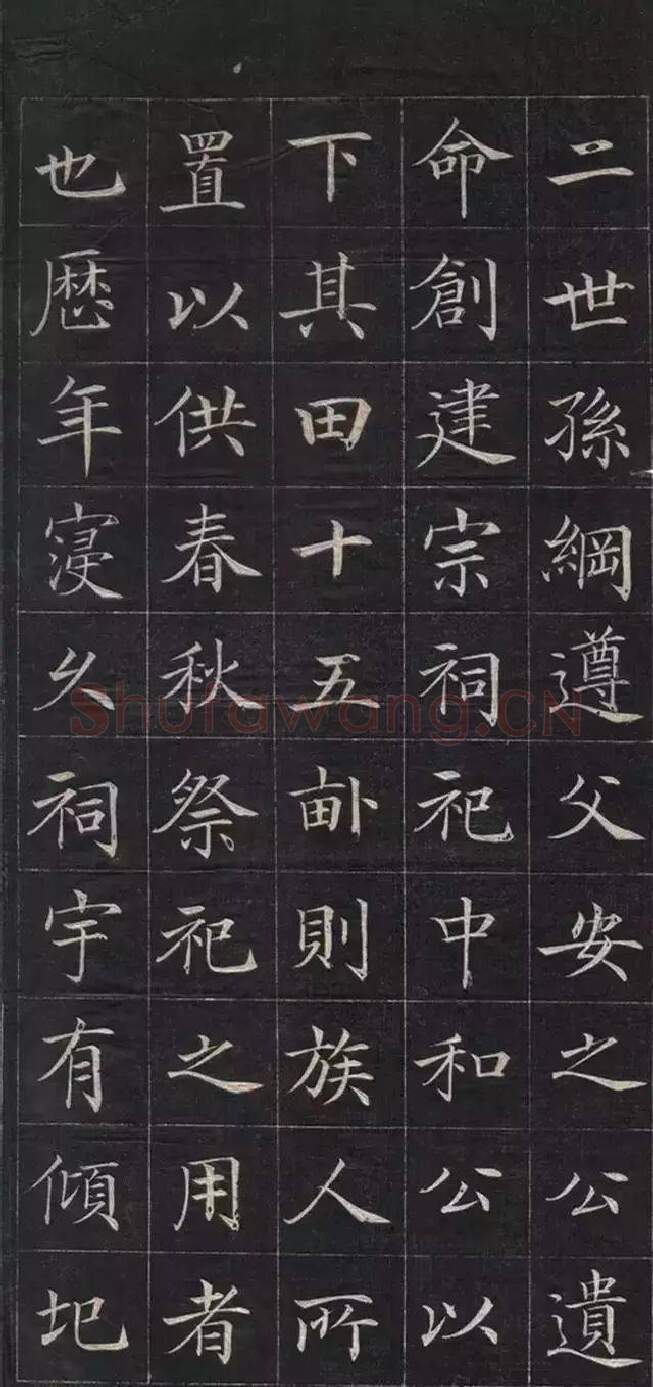 二世孫綱遵父安之公遺
命創建宗祠祀中和公以
下其田十五畝則族人所
置以供春秋祭祀之用者
也歷年寖久祠宇有傾圮
Shufawang.CN